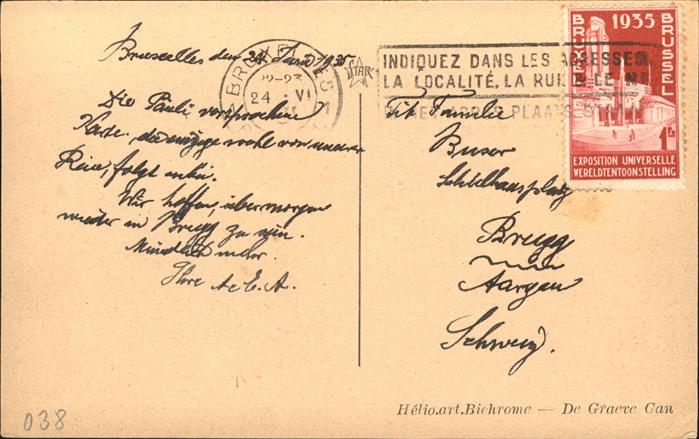 Bruxelles den 24. Juni 1935
Die Pauli versprochene
Karte, die einzige wohl von unserer
Reise, folgt anbei.
Wir hoffen, übermorgen
wieder in Brugg zu sein.
Mündlich mehr.
Ihre A. E. A.
BRUXELLES
22-23
24 VI
STAR
INDIQUEZ DANS LES ADRESSES
LA LOCALITÉ, LA RUE & LE No
1935
BRUXELLES
BRUSSEL
1F
EXPOSITION UNIVERSELLE
WERELDTENTOONSTELLING
Familie
Buser
Schulhausplatz
Brugg
Aargau
Schweiz.
Hélio.art.Bichrome — De Graeve Gan
038